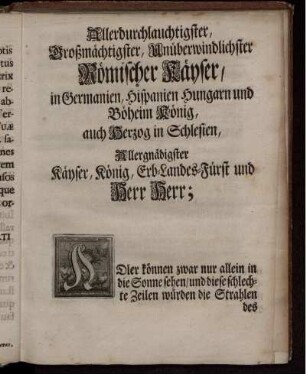 Allerdurchlauchtigster,
Großmächtigster, Unüberwindlichster
Römischer Käyser/
in Germanien, Hispanien Hungarn und
Böheim König,
auch Herzog in Schlesien,
Allergnädigster
Käyser, König, Erb-Landes-Fürst und
Herr Herr;
ADler können zwar nur allein in
die Sonne sehen/ und diese schlech-
te Zeilen würden die Strahlen
des